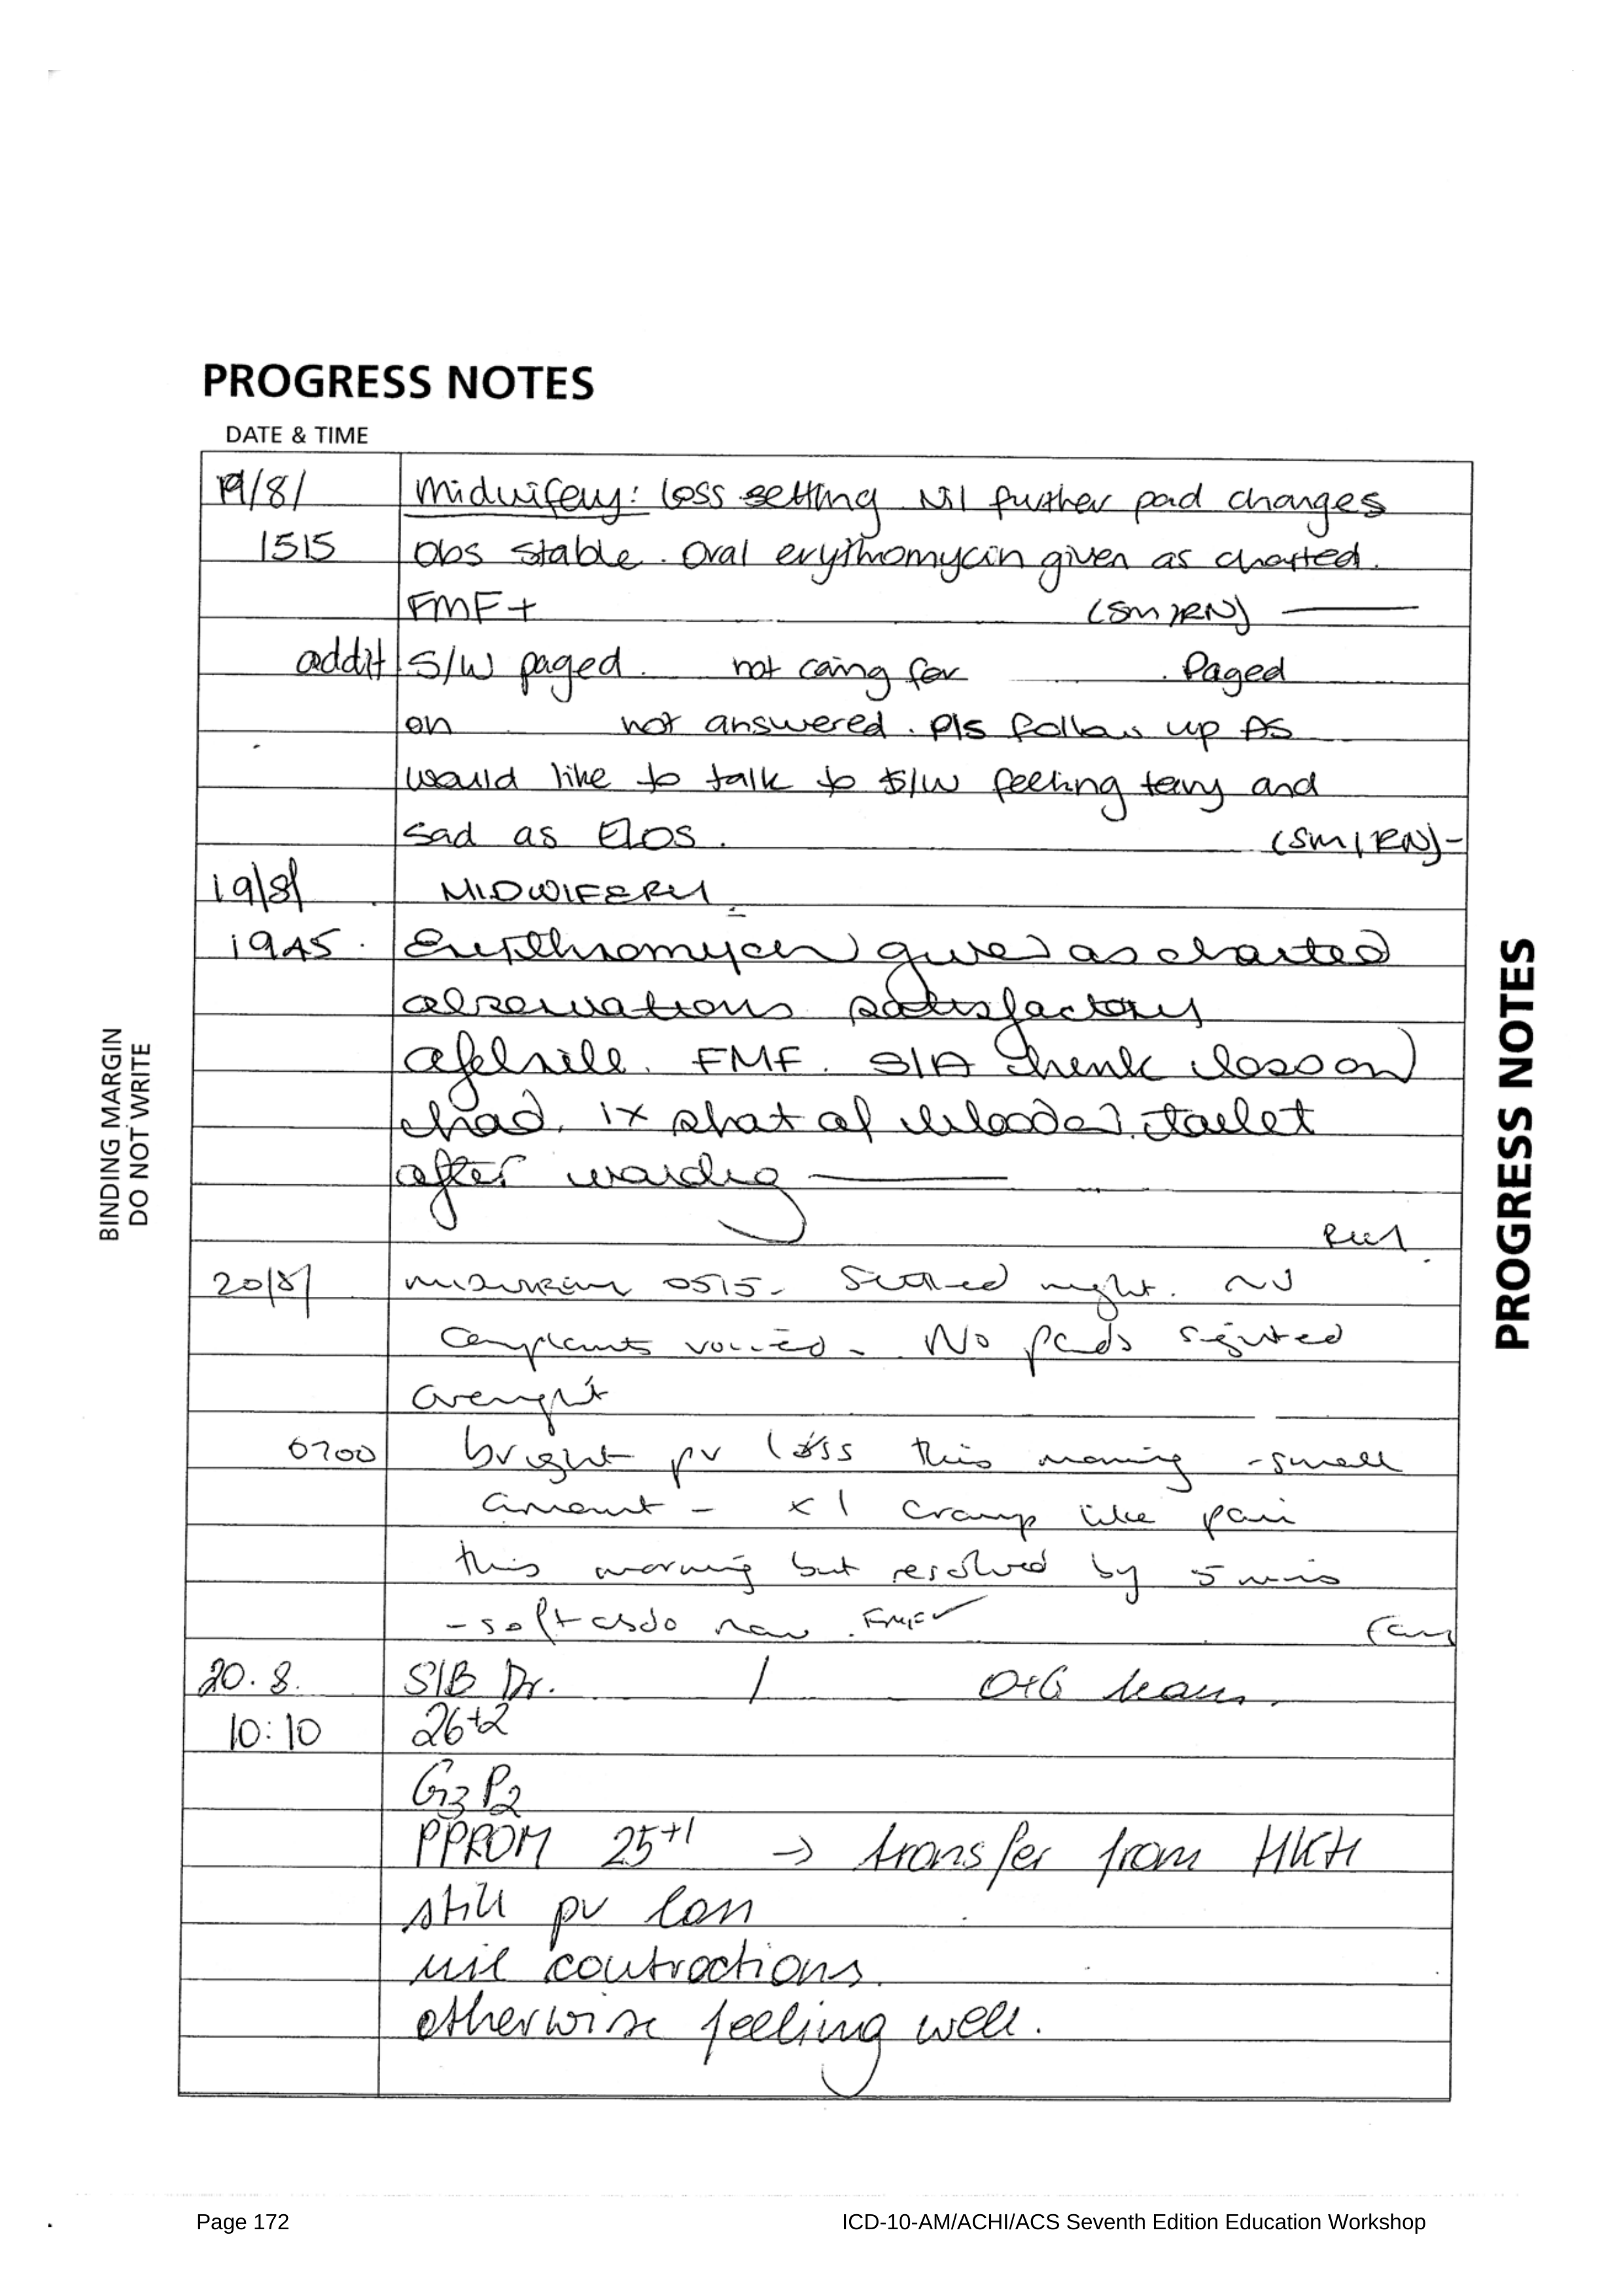 PROGRESS NOTES
DATE & TIME
19/8/ Midwifery: loss settling Nil further pad changes
1515 Obs stable. Oral erythromycin given as charted.
FMF+ (SM/RN)
addit S/W paged. not caring for . Paged
on not answered. Pls follow up As
would like to talk to S/W feeling teary and
sad as ELOS. (SM/RN)-
19/8/ MIDWIFERY
1945. Erythromycin given as charted
observations satisfactory
afebrile. FMF. S/A pink loss on
had. 1x spot of blood toilet
after
20/8/ MIDWIFERY 0515- Settled night. Nil
complaints voiced - No pads sighted
overnight
0700 bright pv loss this morning - small
amount - x1 cramp like pain
this morning but resolved by 5 mins
- soft abdo now. FMF✓
20.8. S/B Dr. / O+G team.
10:10 26+2
G3P2
PPROM 25+1 → transfer from HKH
still pv loss
nil contractions.
otherwise feeling well.
BINDING MARGIN
DO NOT WRITE
PROGRESS NOTES
Page 172 ICD-10-AM/ACHI/ACS Seventh Edition Education Workshop